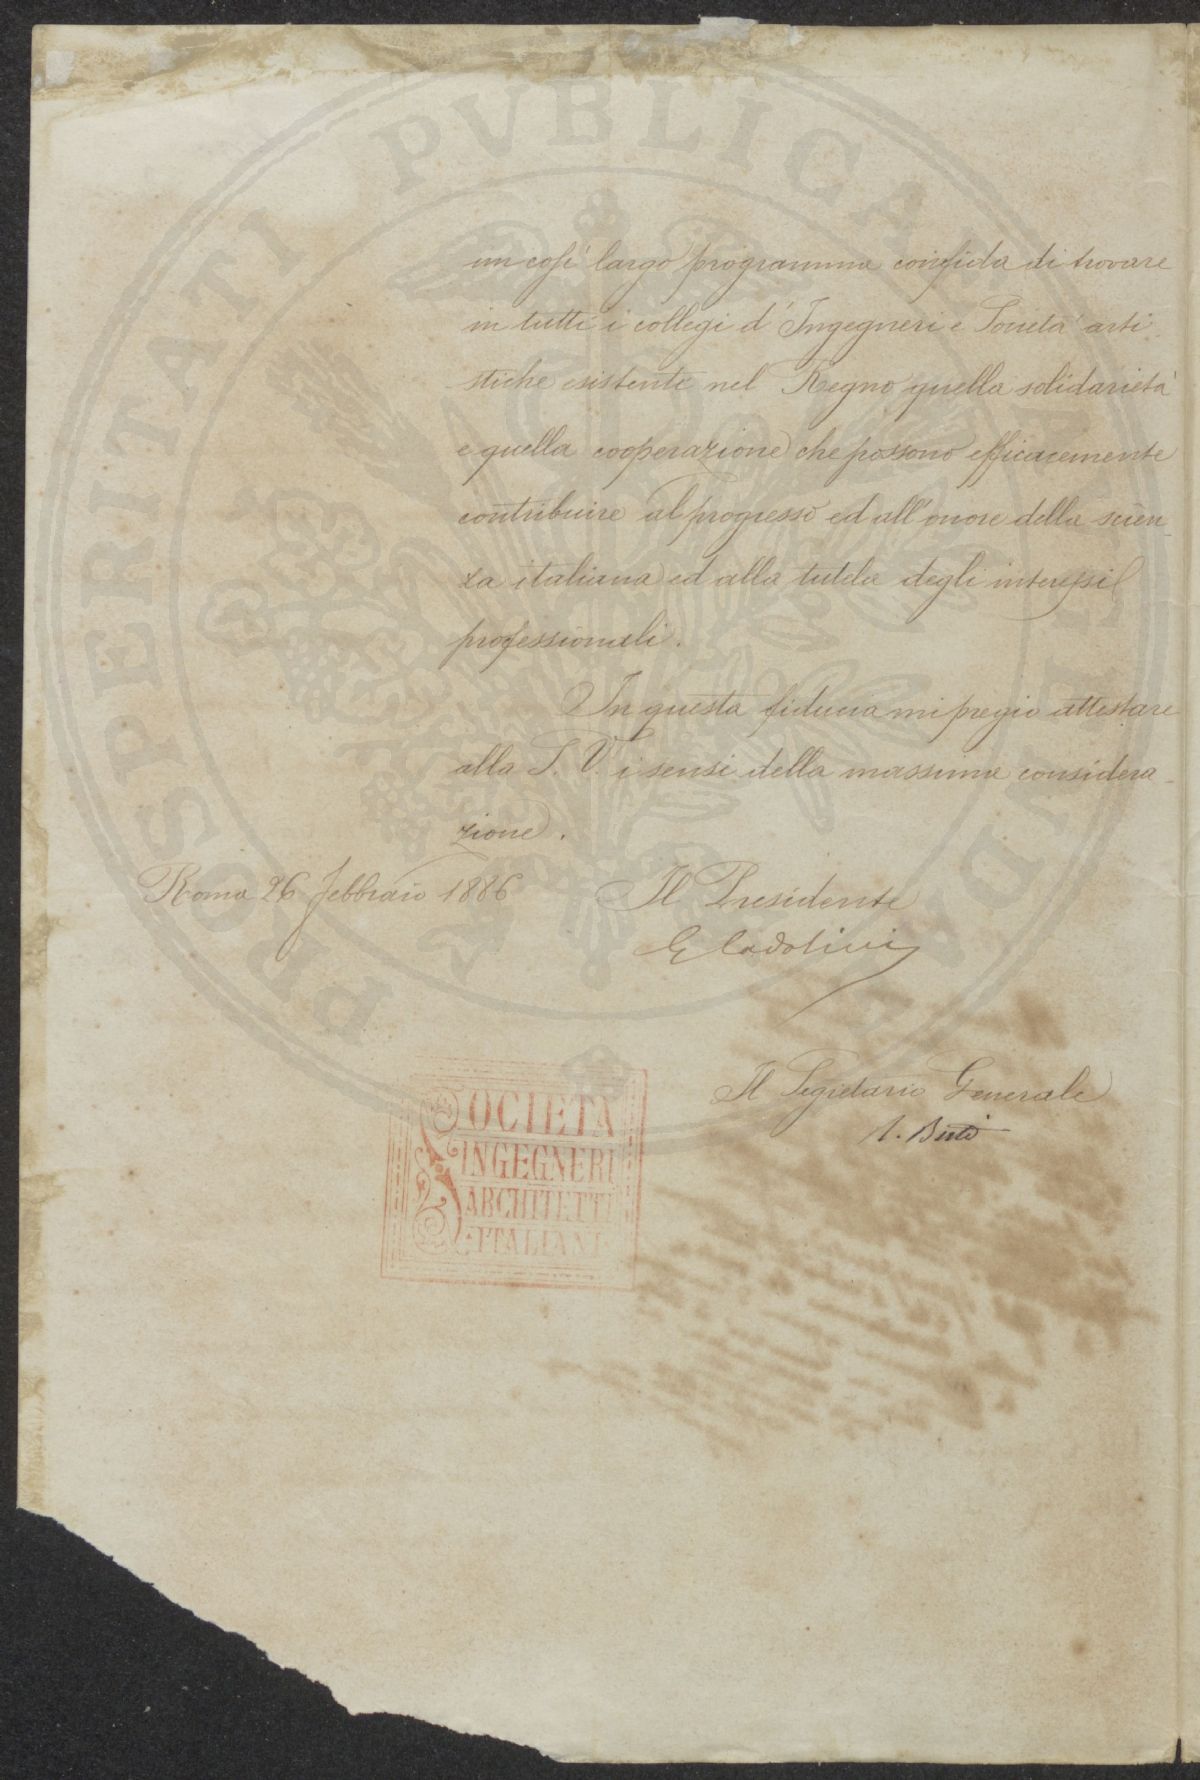 un così largo programma confida di trovare
in tutti i collegi d'Ingegneri e Società arti
stiche esistenti nel Regno quella solidarietà
e quella cooperazione che possono efficacemente
contribuire al progresso ed all'onore della scien_
za italiana ed alla tutela degli interessi
professionali.
In questa fiducia mi pregio attestare
alla S. V. i sensi della massima considera_
zione.
Roma 26 febbraio 1886
Il Presidente
Cadolini
Il Segretario Generale
SOCIETÀ
INGEGNERI
ARCHITETTI
ITALIANI
PROSPERITATI PVBLICAE